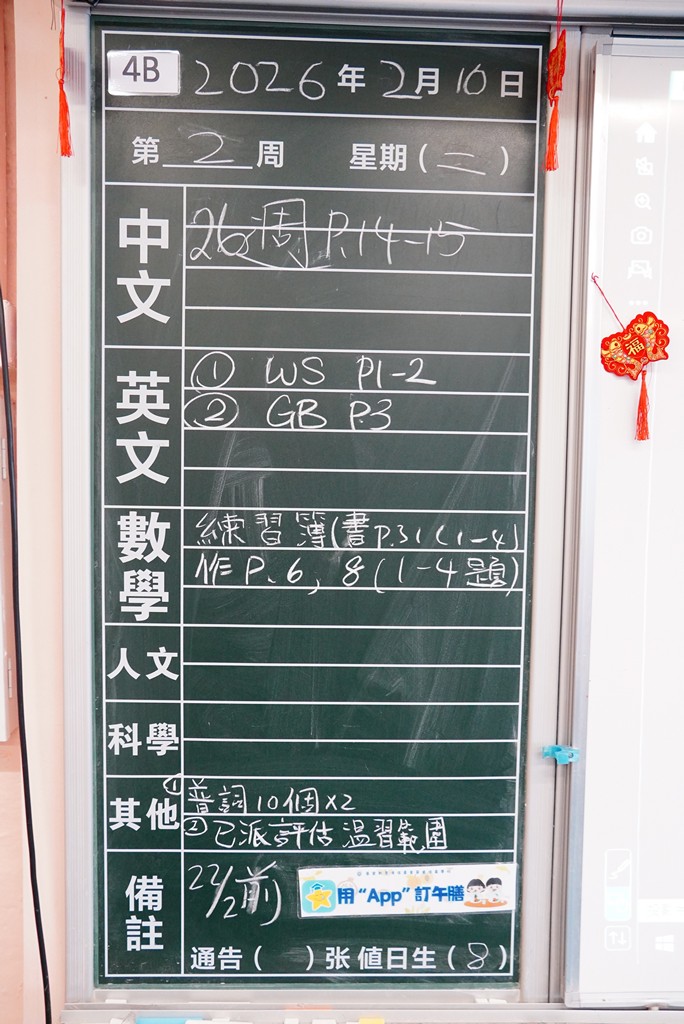 4B 2026年2月10日
第2周 星期(二)
中文
26週 P.14-15
英文
① WS P1-2
② GB P.3
數學
練習簿(書P.31(1-4)
作P.6, 8(1-4題)
人文
科學
其他
①普詞10個x2
②已派評估溫習範圍
備註
22/2前
用“App”訂午膳
通告( )张 值日生(8)
福